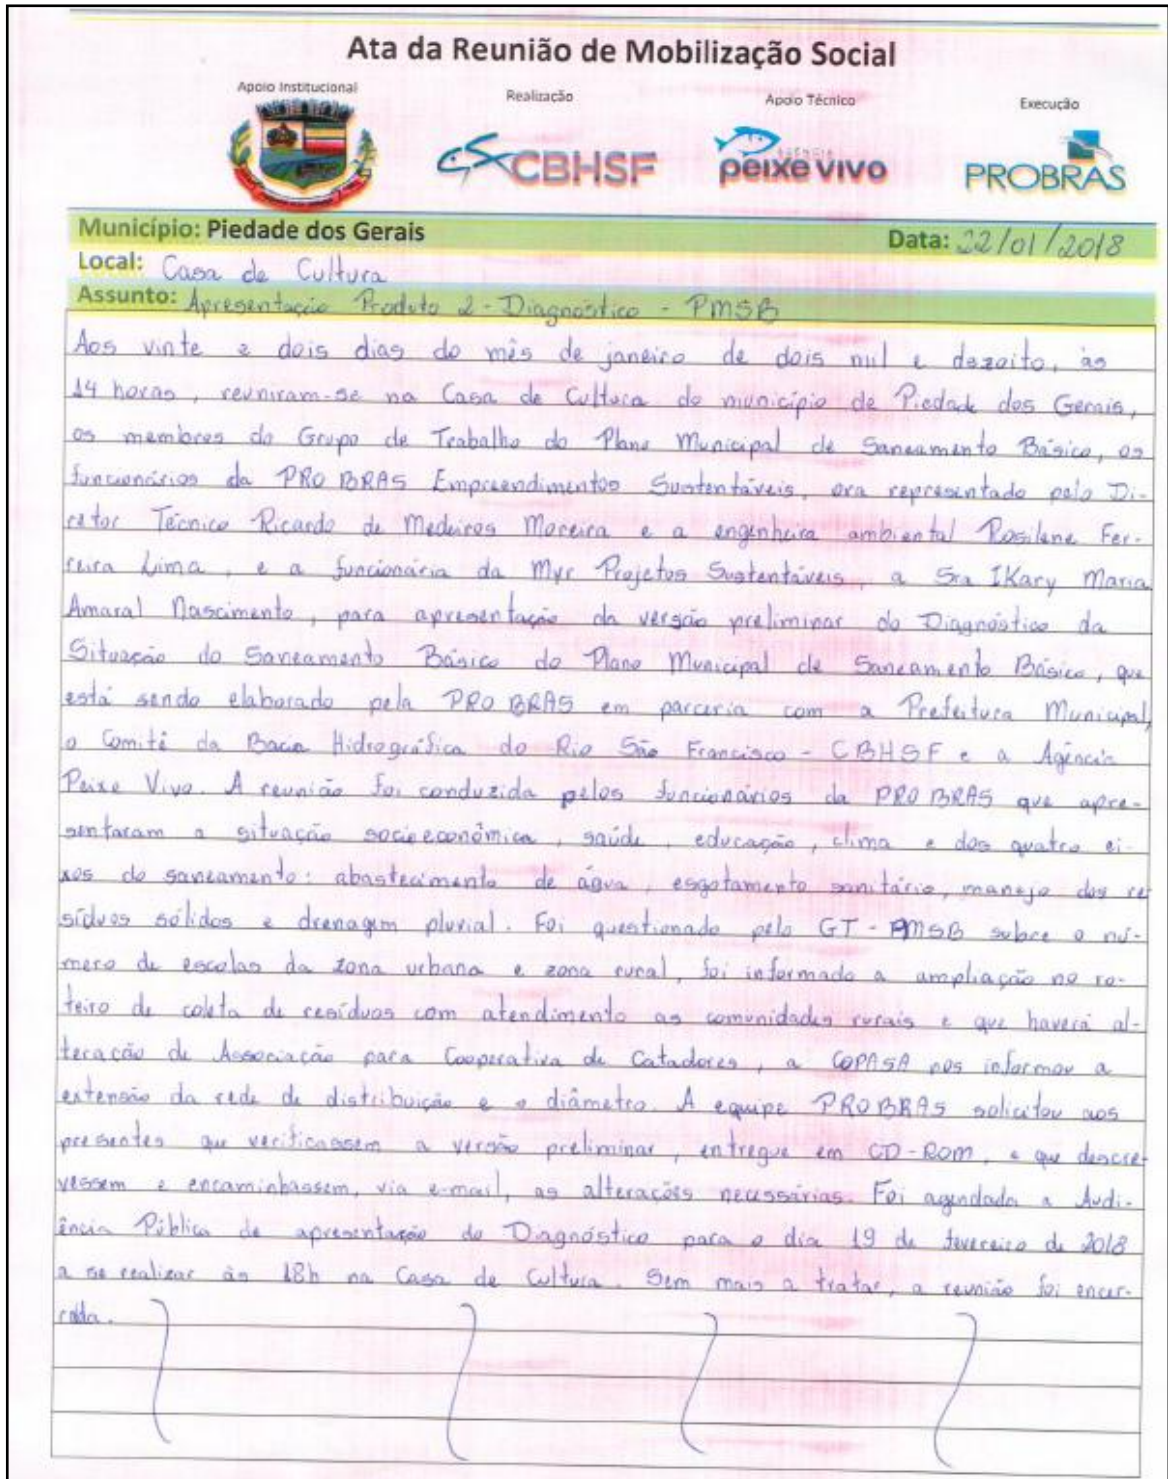 Ata da Reunião de Mobilização Social
Apoio Institucional Realização Apoio Técnico Execução
CBHSF AGÊNCIA peixe vivo PROBRAS
Município: Piedade dos Gerais Data: 22/01/2018
Local: Casa de Cultura
Assunto: Apresentação Produto 2 - Diagnóstico - PMSB
Aos vinte e dois dias do mês de janeiro de dois mil e dezoito, às
14 horas, reuniram-se na Casa de Cultura do município de Piedade dos Gerais,
os membros do Grupo de Trabalho do Plano Municipal de Saneamento Básico, os
funcionários da PROBRAS Empreendimentos Sustentáveis, ora representado pelo Di-
retor Técnico Ricardo de Medeiros Moreira e a engenheira ambiental Rosilene Fer-
reira Lima, e a funcionária da Myr Projetos Sustentáveis, a Sra IKary Maria
Amaral Nascimento, para apresentação da versão preliminar do Diagnóstico da
Situação do Saneamento Básico do Plano Municipal de Saneamento Básico, que
está sendo elaborado pela PROBRAS em parceria com a Prefeitura Municipal,
o Comitê da Bacia Hidrográfica do Rio São Francisco - CBHSF e a Agência
Peixe Vivo. A reunião foi conduzida pelos funcionários da PROBRAS que apre-
sentaram a situação socioeconômica, saúde, educação, clima e dos quatro ei-
xos do saneamento: abastecimento de água, esgotamento sanitário, manejo dos re
síduos sólidos e drenagem pluvial. Foi questionado pelo GT - PMSB sobre o nú-
mero de escolas da zona urbana e zona rural, foi informado a ampliação no ro-
teiro de coleta de resíduos com atendimento as comunidades rurais e que haverá al-
teração de Associação para Cooperativa de Catadores, a COPASA nos informou a
extensão da rede de distribuição e o diâmetro. A equipe PROBRAS solicitou aos
presentes que verificassem a versão preliminar, entregue em CD-ROM, e que descre
vessem e encaminhassem, via e-mail, as alterações necessárias. Foi agendada a Audi-
ência Pública de apresentação do Diagnóstico para o dia 19 de fevereiro de 2018
a se realizar às 18h na Casa de Cultura. Sem mais a tratar, a reunião foi encer-
rada.